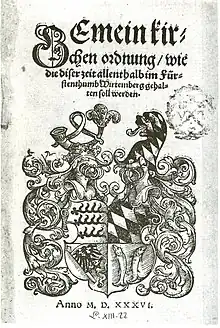 Gemein kir-
chen ordnung / wie
die diser zeit allenthalb im Für-
stenthumb Wirtemberg gehal-
ten soll werden.
Anno M. D. XXXVI.